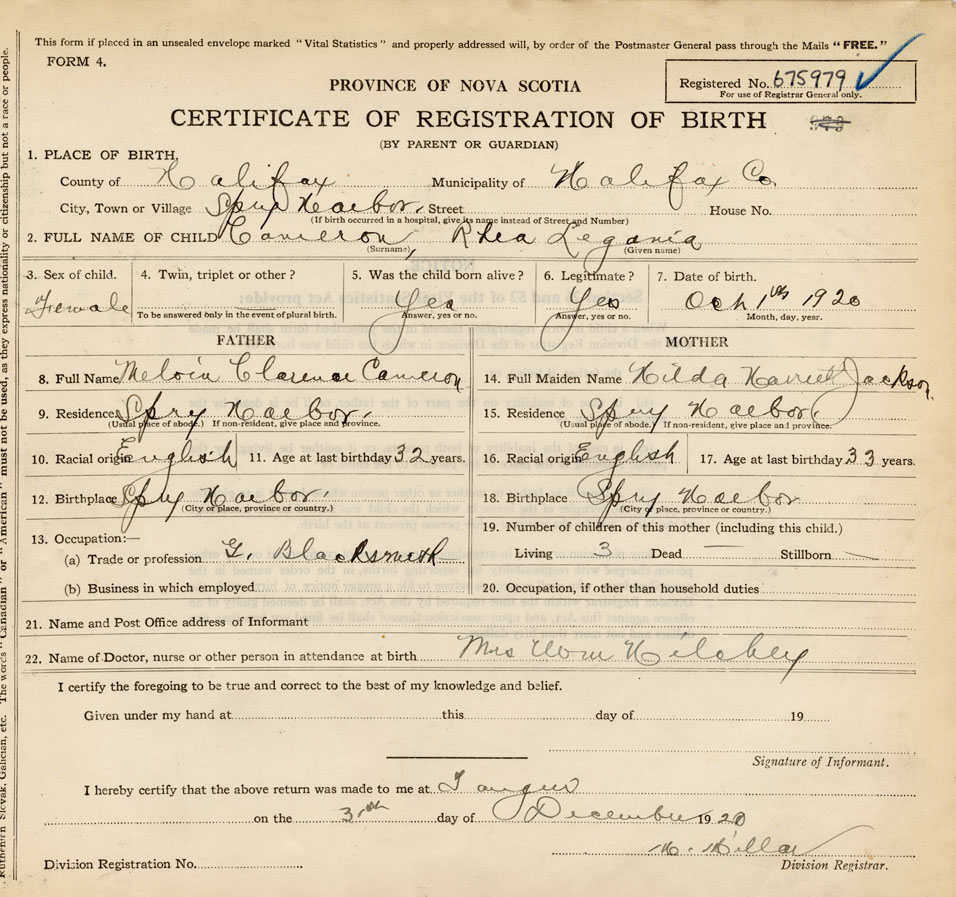 This form if placed in an unsealed envelope marked "Vital Statistics" and properly addressed will, by order of the Postmaster General pass through the Mails "FREE."
FORM 4.
Registered No. 675979
For use of Registrar General only.
PROVINCE OF NOVA SCOTIA
CERTIFICATE OF REGISTRATION OF BIRTH
(BY PARENT OR GUARDIAN)
1. PLACE OF BIRTH,
County of Halifax Municipality of Halifax Co.
City, Town or Village Spry Harbor. Street House No.
(If birth occurred in a hospital, give its name instead of Street and Number)
2. FULL NAME OF CHILD Cameron, Rhea
(Surname) (Given name)
3. Sex of child. 4. Twin, triplet or other? 5. Was the child born alive? 6. Legitimate? 7. Date of birth.
Female Yea Yes Oct 1th 1920
To be answered only in the event of plural birth. Answer, yes or no. Answer, yes or no. Month, day, year.
FATHER MOTHER
8. Full Name Melvin Clarence Cameron 14. Full Maiden Name Hilda Harriett Jackson
9. Residence Spry Harbor. 15. Residence Spry Harbor.
(Usual place of abode.) If non-resident, give place and province. (Usual place of abode.) If non-resident, give place and province.
10. Racial origin English 11. Age at last birthday 32 years. 16. Racial origin English 17. Age at last birthday 33 years.
12. Birthplace Spry Harbor. 18. Birthplace Spry Harbor
(City or place, province or country.) (City or place, province or country.)
13. Occupation:— 19. Number of children of this mother (including this child.)
(a) Trade or profession Blacksmith Living 3 Dead — Stillborn —
(b) Business in which employed 20. Occupation, if other than household duties
21. Name and Post Office address of Informant
22. Name of Doctor, nurse or other person in attendance at birth Mrs Wm Hilchey
I certify the foregoing to be true and correct to the best of my knowledge and belief.
Given under my hand at this day of 19
Signature of Informant.
I hereby certify that the above return was made to me at Tangier
on the 3rth day of December 1920
Division Registration No. Division Registrar.
The words "Canadian" or "American" must not be used, as they express nationality or citizenship but not a race or people.